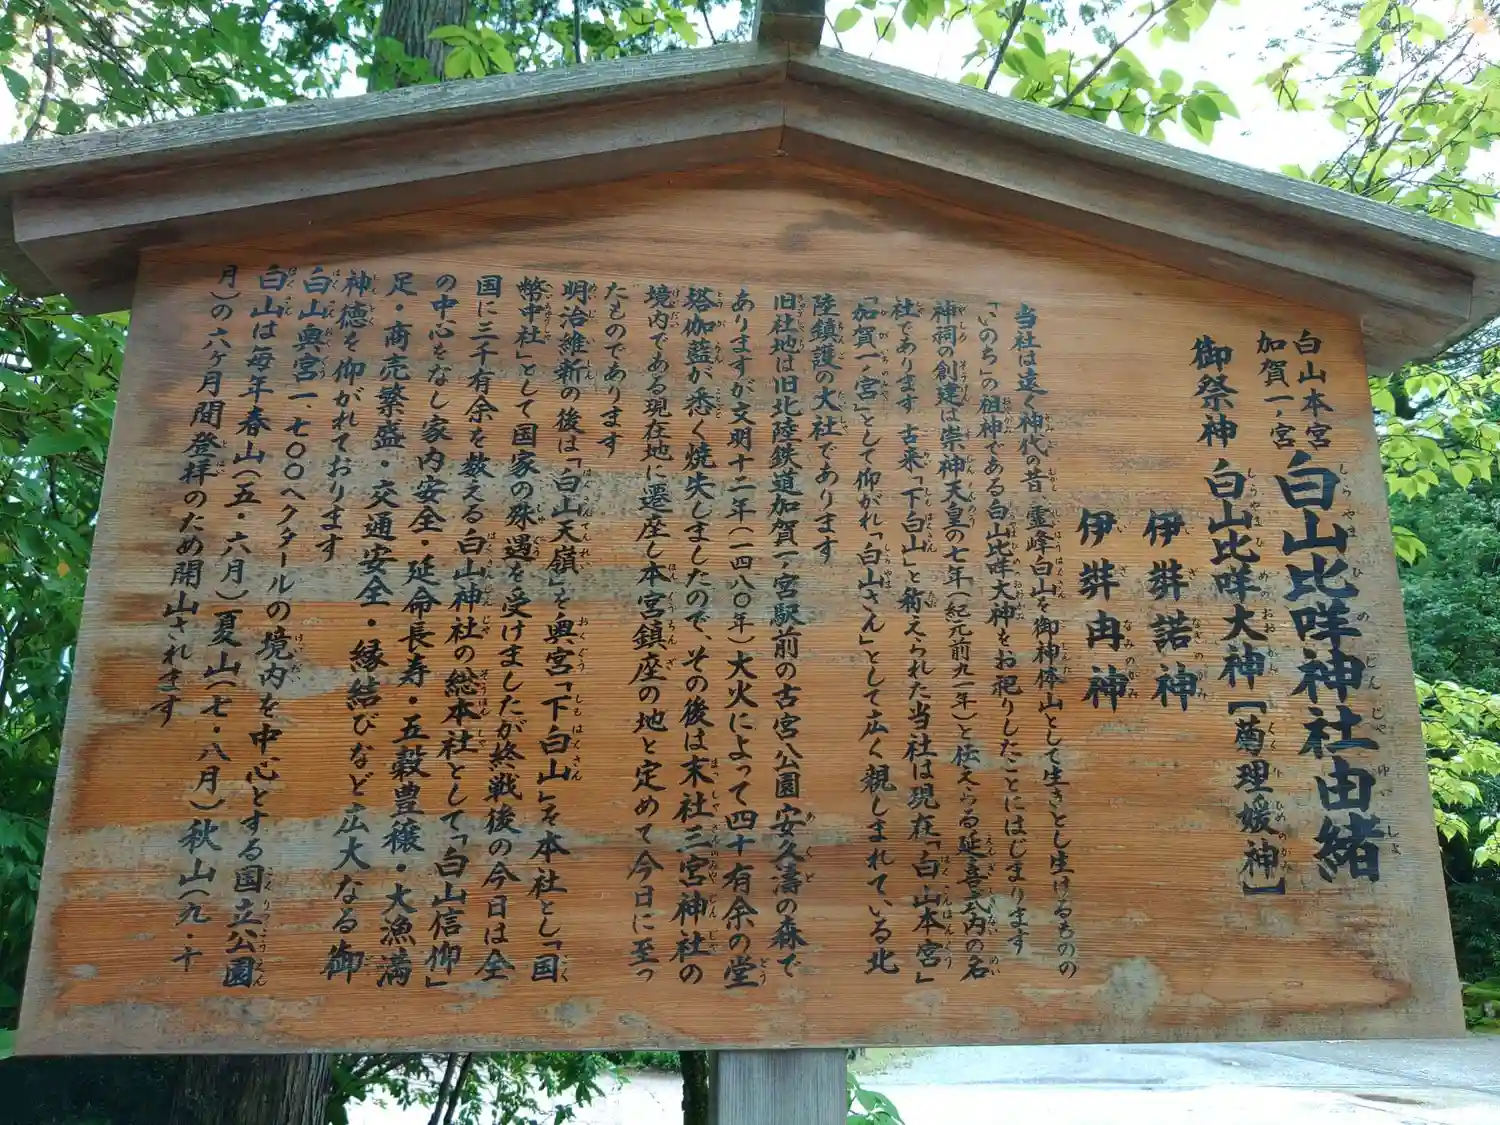 白山本宮
加賀一ノ宮
白山比咩神社由緒
御祭神 白山比咩大神【菊理媛神】
伊弉諾神
伊弉冉神
当社は遠く神代の昔、霊峰白山を御神体山として生きとし生けるものの
「いのち」の祖神である白山比咩大神をお祀りしたことにはじまります
神祠の創建は崇神天皇の七年(紀元前九一年)と伝えらる延喜式内の名
社であります 古来「下白山」と称えられた当社は現在「白山本宮」
「加賀一ノ宮」として仰がれ「白山さん」として広く親しまれている北
陸鎮護の大社であります
旧社地は旧北陸鉄道加賀一ノ宮駅前の古宮公園安久濤の森で
ありますが文明十二年(一四八〇年)大火によって四十有余の堂
塔伽藍が悉く焼失しましたので、その後は末社三宮神社の
境内である現在地に遷座し本宮鎮座の地と定めて今日に至っ
たものであります
明治維新の後は「白山天嶺」を奥宮「下白山」を本社とし「国
幣中社」として国家の殊遇を受けましたが終戦後の今日は全
国に三千有余を数える白山神社の総本社として「白山信仰」
の中心をなし家内安全・延命長寿・五穀豊穣・大漁満
足・商売繁盛・交通安全・縁結びなど広大なる御
神徳を仰がれております
白山奥宮一、七〇〇ヘクタールの境内を中心とする国立公園
白山は毎年春山(五・六月)夏山(七・八月)秋山(九・十
月)の六ヶ月間登拝のため開山されます